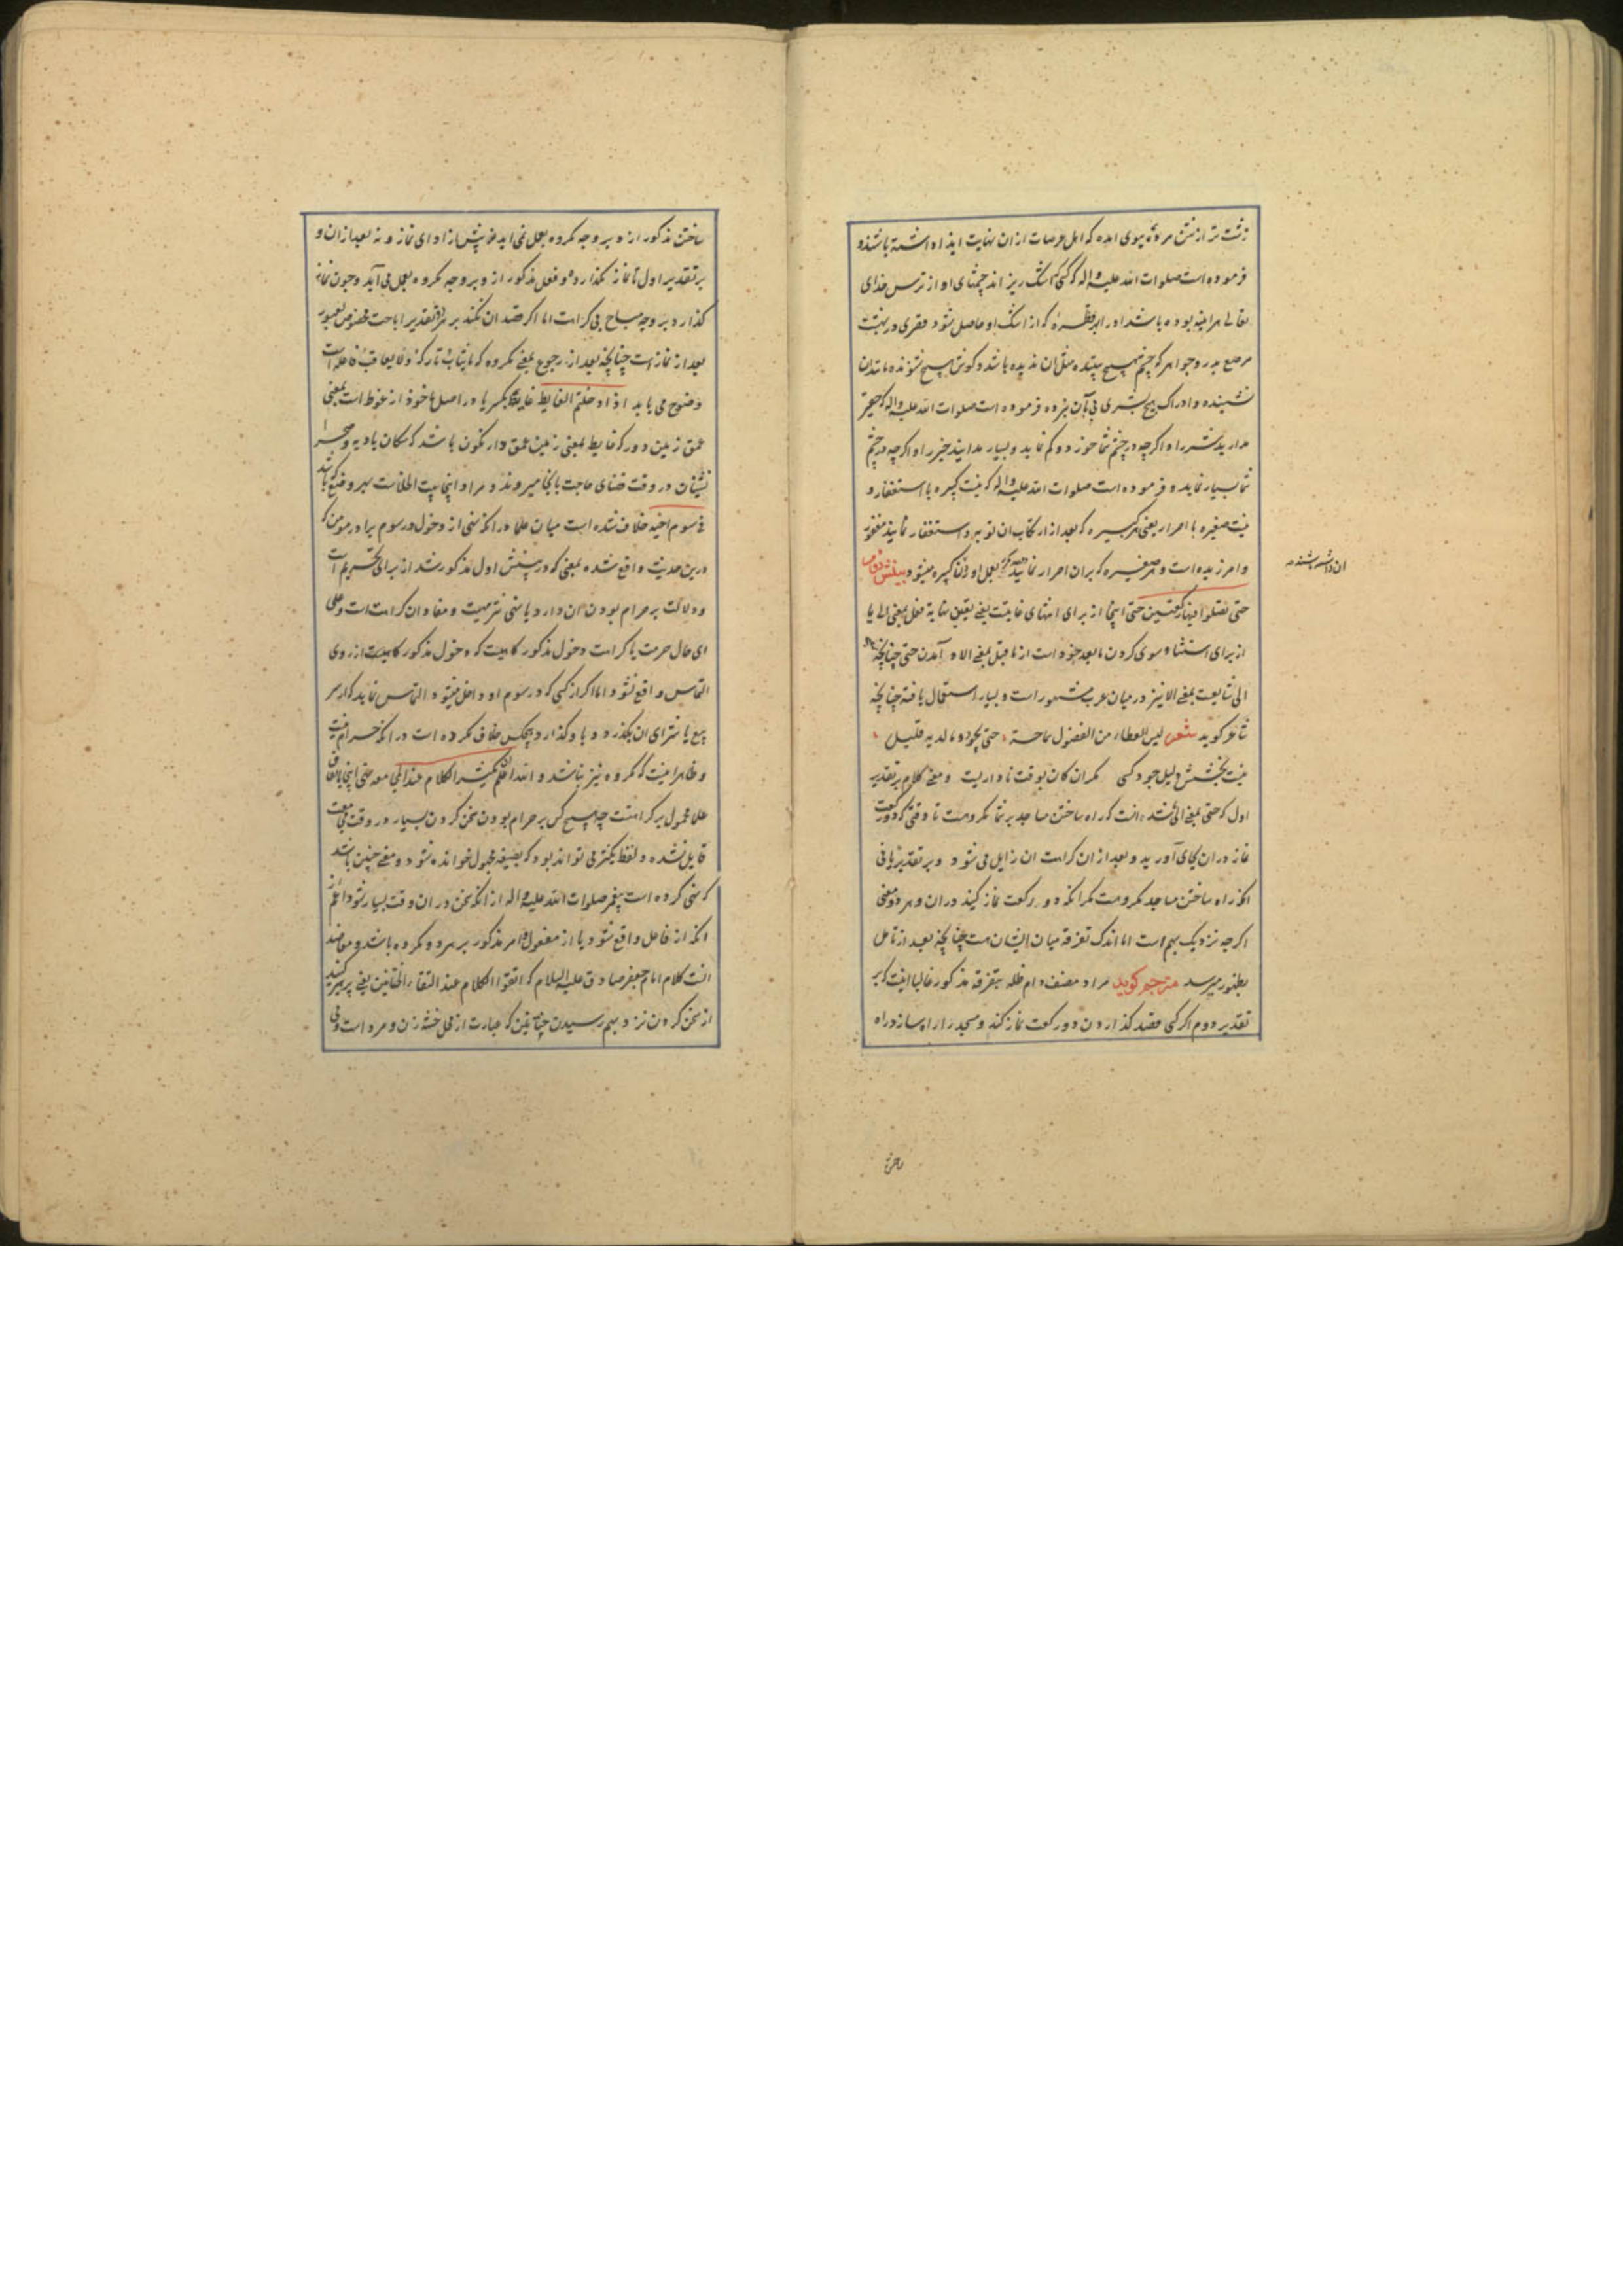 زشت تر از نتن مردهٔ بوی امده که اهل عرصات ازان نهایت ایذا داشته باشند و
فرموده است صلوات الله علیه واله که کسی که اشک ریزاند چشمهای او از ترس خدای
تعالی مر او را بوده باشد در ازای هر قطره که از اشک او حاصل شود قصری در بهشت
مرصع بدر و جواهر که چشم هیچ بیننده مثل ان ندیده باشد و گوش هیچ شنونده مانند ان
نشنیده و ادراک هیچ بشری پی بآن نبرده فرموده است صلوات الله علیه واله که حقیر
مدارید شر را و اگرچه در چشم شما خورد و کم نماید و بسیار مدانید خیر را و اگرچه در چشم
شما بسیار نماید و فرموده است صلوات الله علیه واله که نیست کبیره با استغفار و
نیست صغیره با اصرار یعنی هر کبیره که بعد از ارتکاب ان توبه و استغفار نمایند مغفور
و امرزیده است و هر صغیره که بران اصرار نمایند بعمل او دران کبیره میشود بینش دوم
ان داشته باشند
حتی تصلوا فیها رکعتین حتی اینجا از برای انتهای غایتست یعنی تعیین نهایة فعل بمعنی الی یا
از برای استثنا و سوی کردن ما بعد خود است از ما قبل بمعنی الا و آمدن حتی چنانچه
الی شایعست بمعنی الا نیز در میان عرب مشهور است و بسیار استعمال یافته چنانچه
شاعر کوید شعر لیس العطاء من الفضول سماحة حتی یجود و ما لدیه قلیل
نیست بخشش دلیل جود کسی مکر ان کان بوقت ناداریست و معنی کلام بر تقدیر
اول که حتی بمعنی الی باشد انست که راه ساختن مساجد بر شما مکروهست تا وقتی که دو رکعت
نماز دران بجای آورید و بعد ازان کراهت ان زایل می شود و بر تقدیر ثانی
انکه راه ساختن مساجد مکروهست مکر انکه دو رکعت نماز کنید دران و هر دو معنی
اکرچه نزدیک بهم است اما اندک تفرقه میان ایشان هست چنانچه بعد از تامل
بظهور میرسد مترجم کوید مراد مصنف دام ظله بتفرقه مذکور غالبا اینست که بر
تقدیر دوم اکر کسی قصد کذاردن دو رکعت نماز کند و مسجد را راه سازد راه
ساختن مذکور از و بر وجه مکروه بعمل نمی اید نه پیش از ادای نماز و نه بعد ازان و
بر تقدیر اول تا نماز نکذارده فعل مذکور از و بر وجه مکروه بعمل می آید و چون نماز
کذارد بر وجه مباح بی کراهت اما اکر قصد ان نکند بر هر دو تقدیر اباحت مخصوص بعبور
بعد از نماز است چنانچه بعد از رجوع بمعنی مکروه که ما یثاب تارکه ولا یعاقب فاعله است
وضوح می یابد اذا دخلتم الغایط غایط بکسر یا در اصل ماخوذ از غوط است بمعنی
عمق زمین و در که غایط بمعنی زمین عمق دار نکون باشد که سکان بادیه و صحرا
نشینان در وقت قضای حاجت بانجا میروند و مراد اینجا بیت الخلاست
فی سوم اخیه خلاف شده است میان علما در انکه نهی از دخول در سوم برادر مومن که
درین حدیث واقع شده بمعنی که در بینش اول مذکور شد از برای تحریم است
و دلالت بر حرام بودن ان دارد یا نهی تنزیهیست و مفاد ان کراهت است و علی
ای حال حرمت یا کراهت دخول مذکور کاهیست که دخول مذکور از روی
التماس واقع نشود اما اکر از کسی که در سوم او داخل میشود التماس نماید که از سر
بیع یا شرای ان بکذرد و با و کذارد هیچکس خلاف نکرده است در انکه حرام نیست
و ظاهرا نیست که مکروه نیز نباشد و الله اعلم یکثر الکلام عند المجامعة نهی اینجا باتفاق
علما محمول بر کراهتست چه هیچ کس بر حرام بودن سخن کردن بسیار در وقت مجامعت
قایل نشده و لفظ یکثر می تواند بود که بصیغه مجهول خوانده شود و معنی چنین باشد
که نهی کرده است پیغمبر صلوات الله علیه واله از انکه سخن در ان وقت بسیار شود اعم از
انکه از فاعل واقع شود یا از مفعول و امر مذکور بر هر دو مکروه باشد و معاضد
انست کلام امام جعفر صادق علیه السلام که اتقوا الکلام عند التقاء الختانین یعنی بپرهیزید
از سخن کردن نزد بهم رسیدن ختانین که عبارت از محل ختنه زن و مرد است